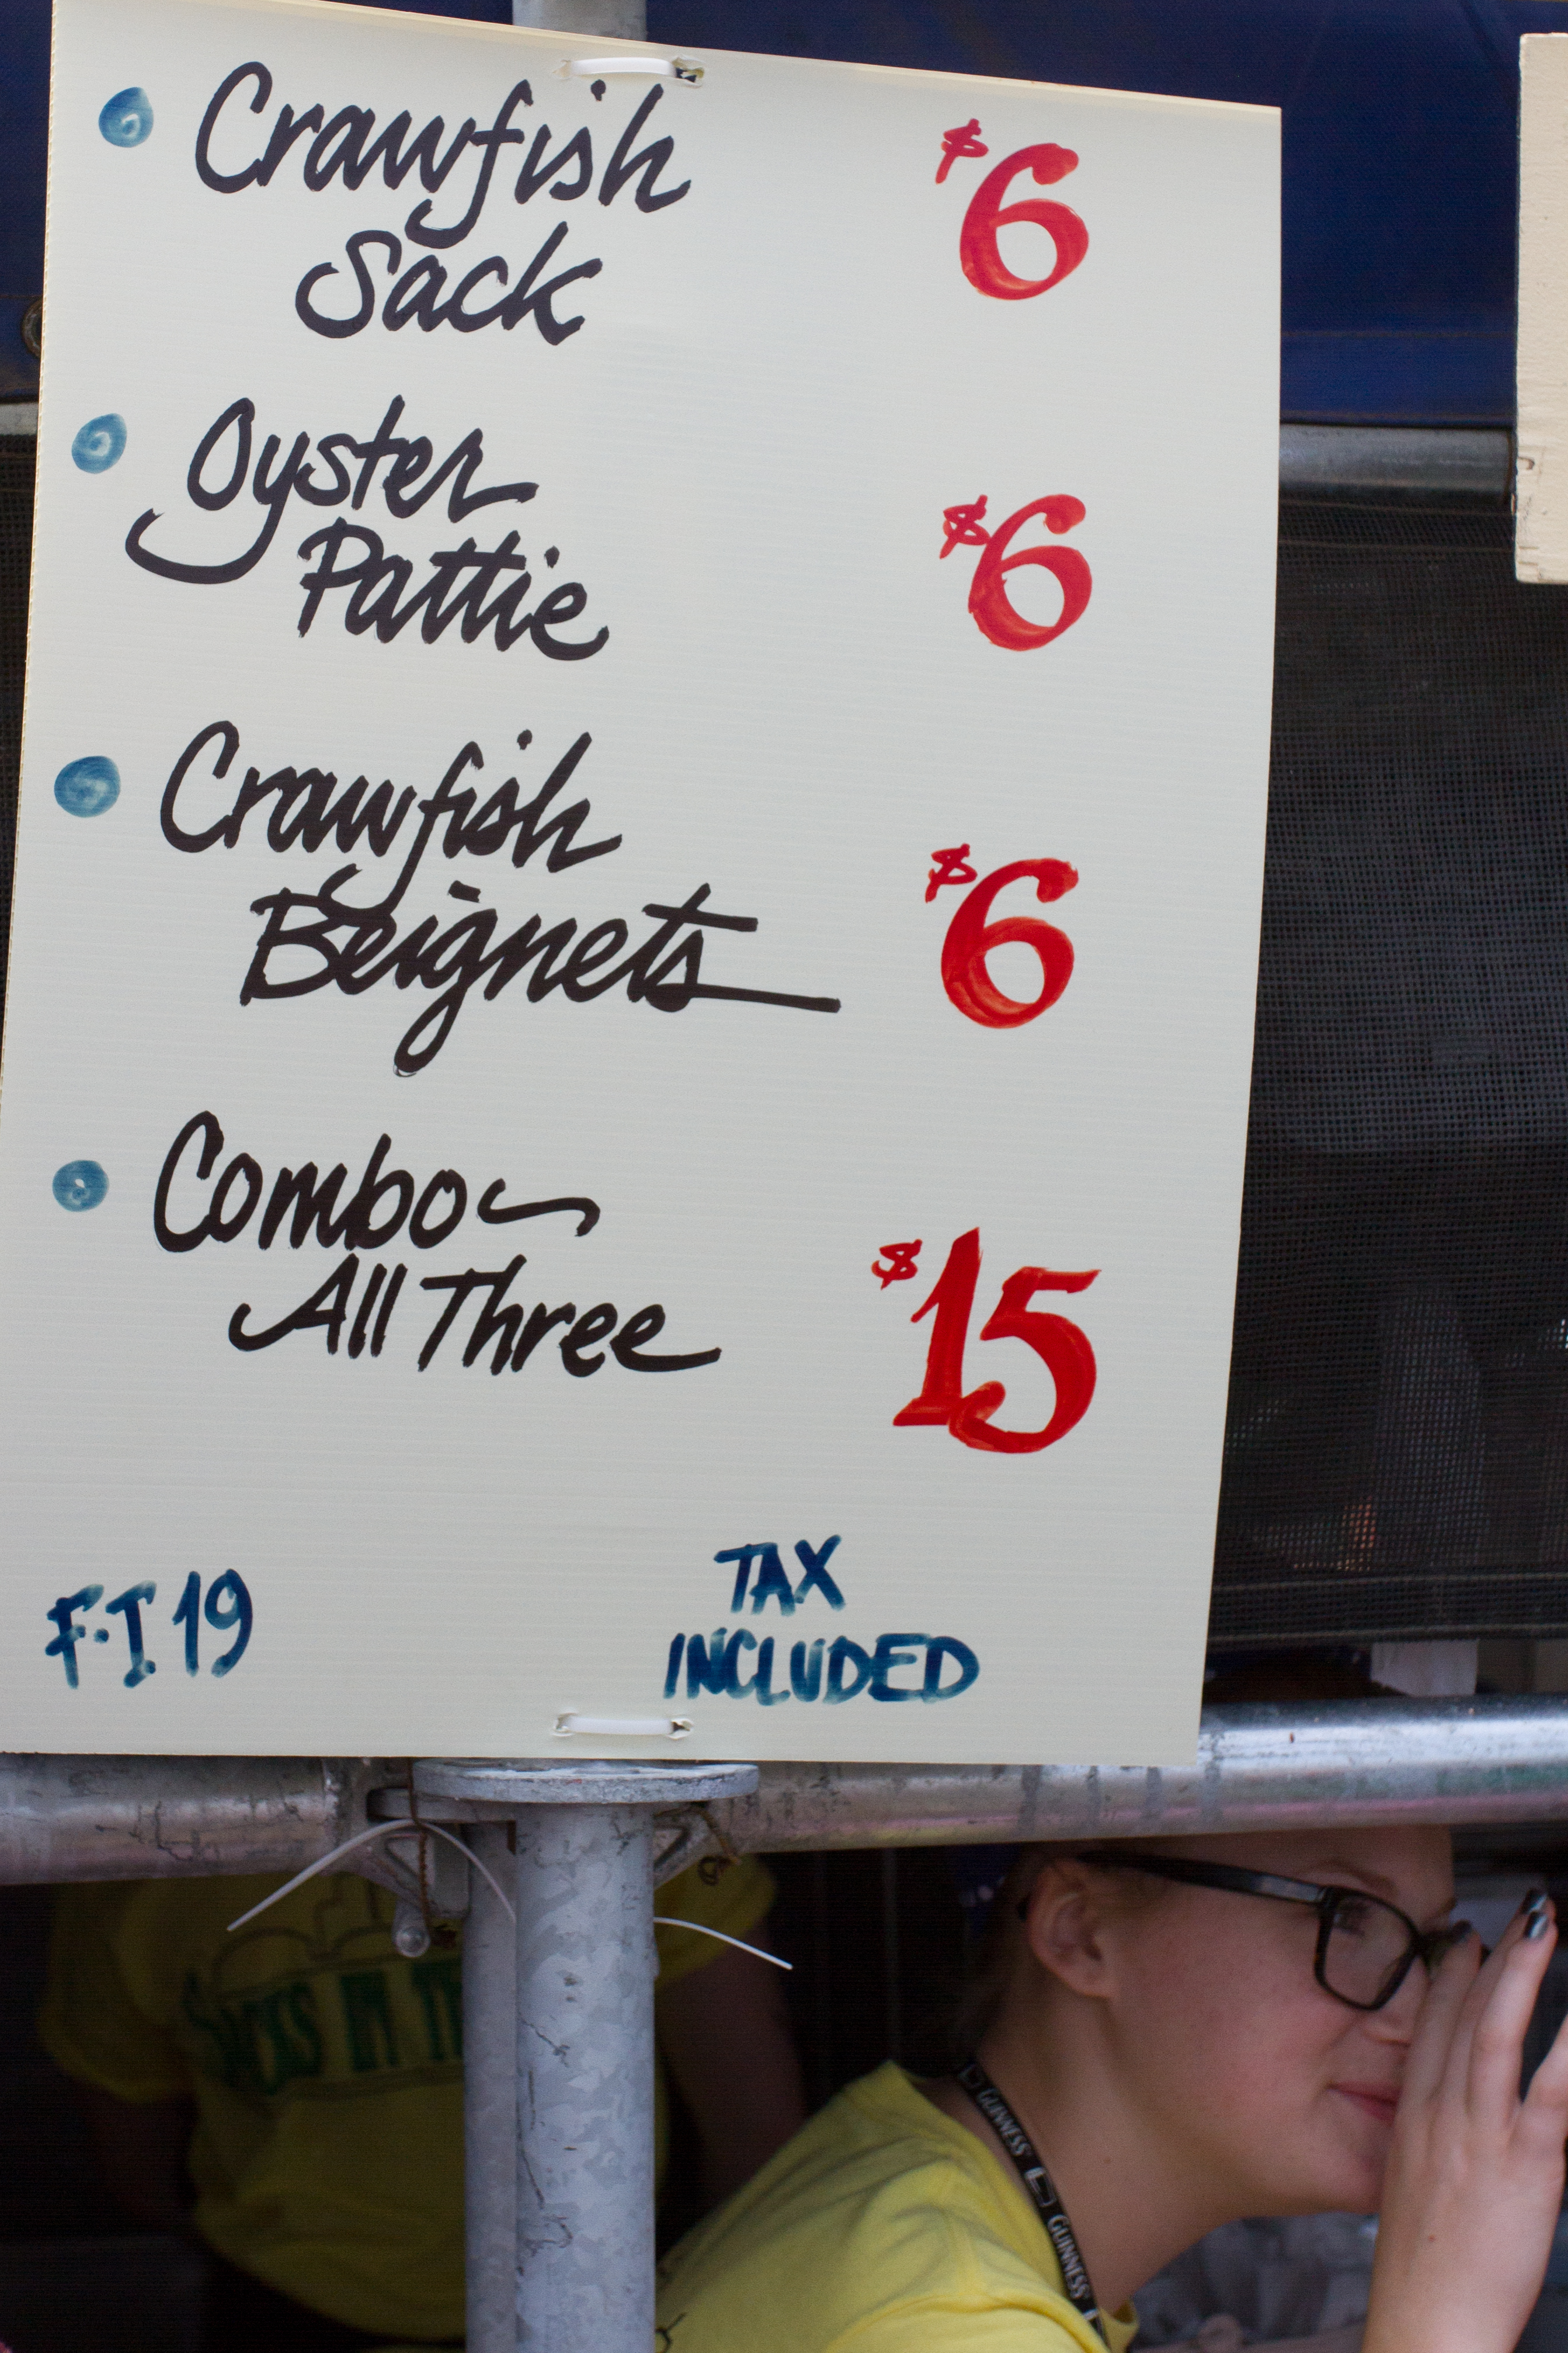 Crawfish $6
Sack
Oyster $6
Pattie
Crawfish $6
Beignets
Combo~
All Three $15
TAX
F.I 19 INCLUDED
GUINNESS
GUINNESS